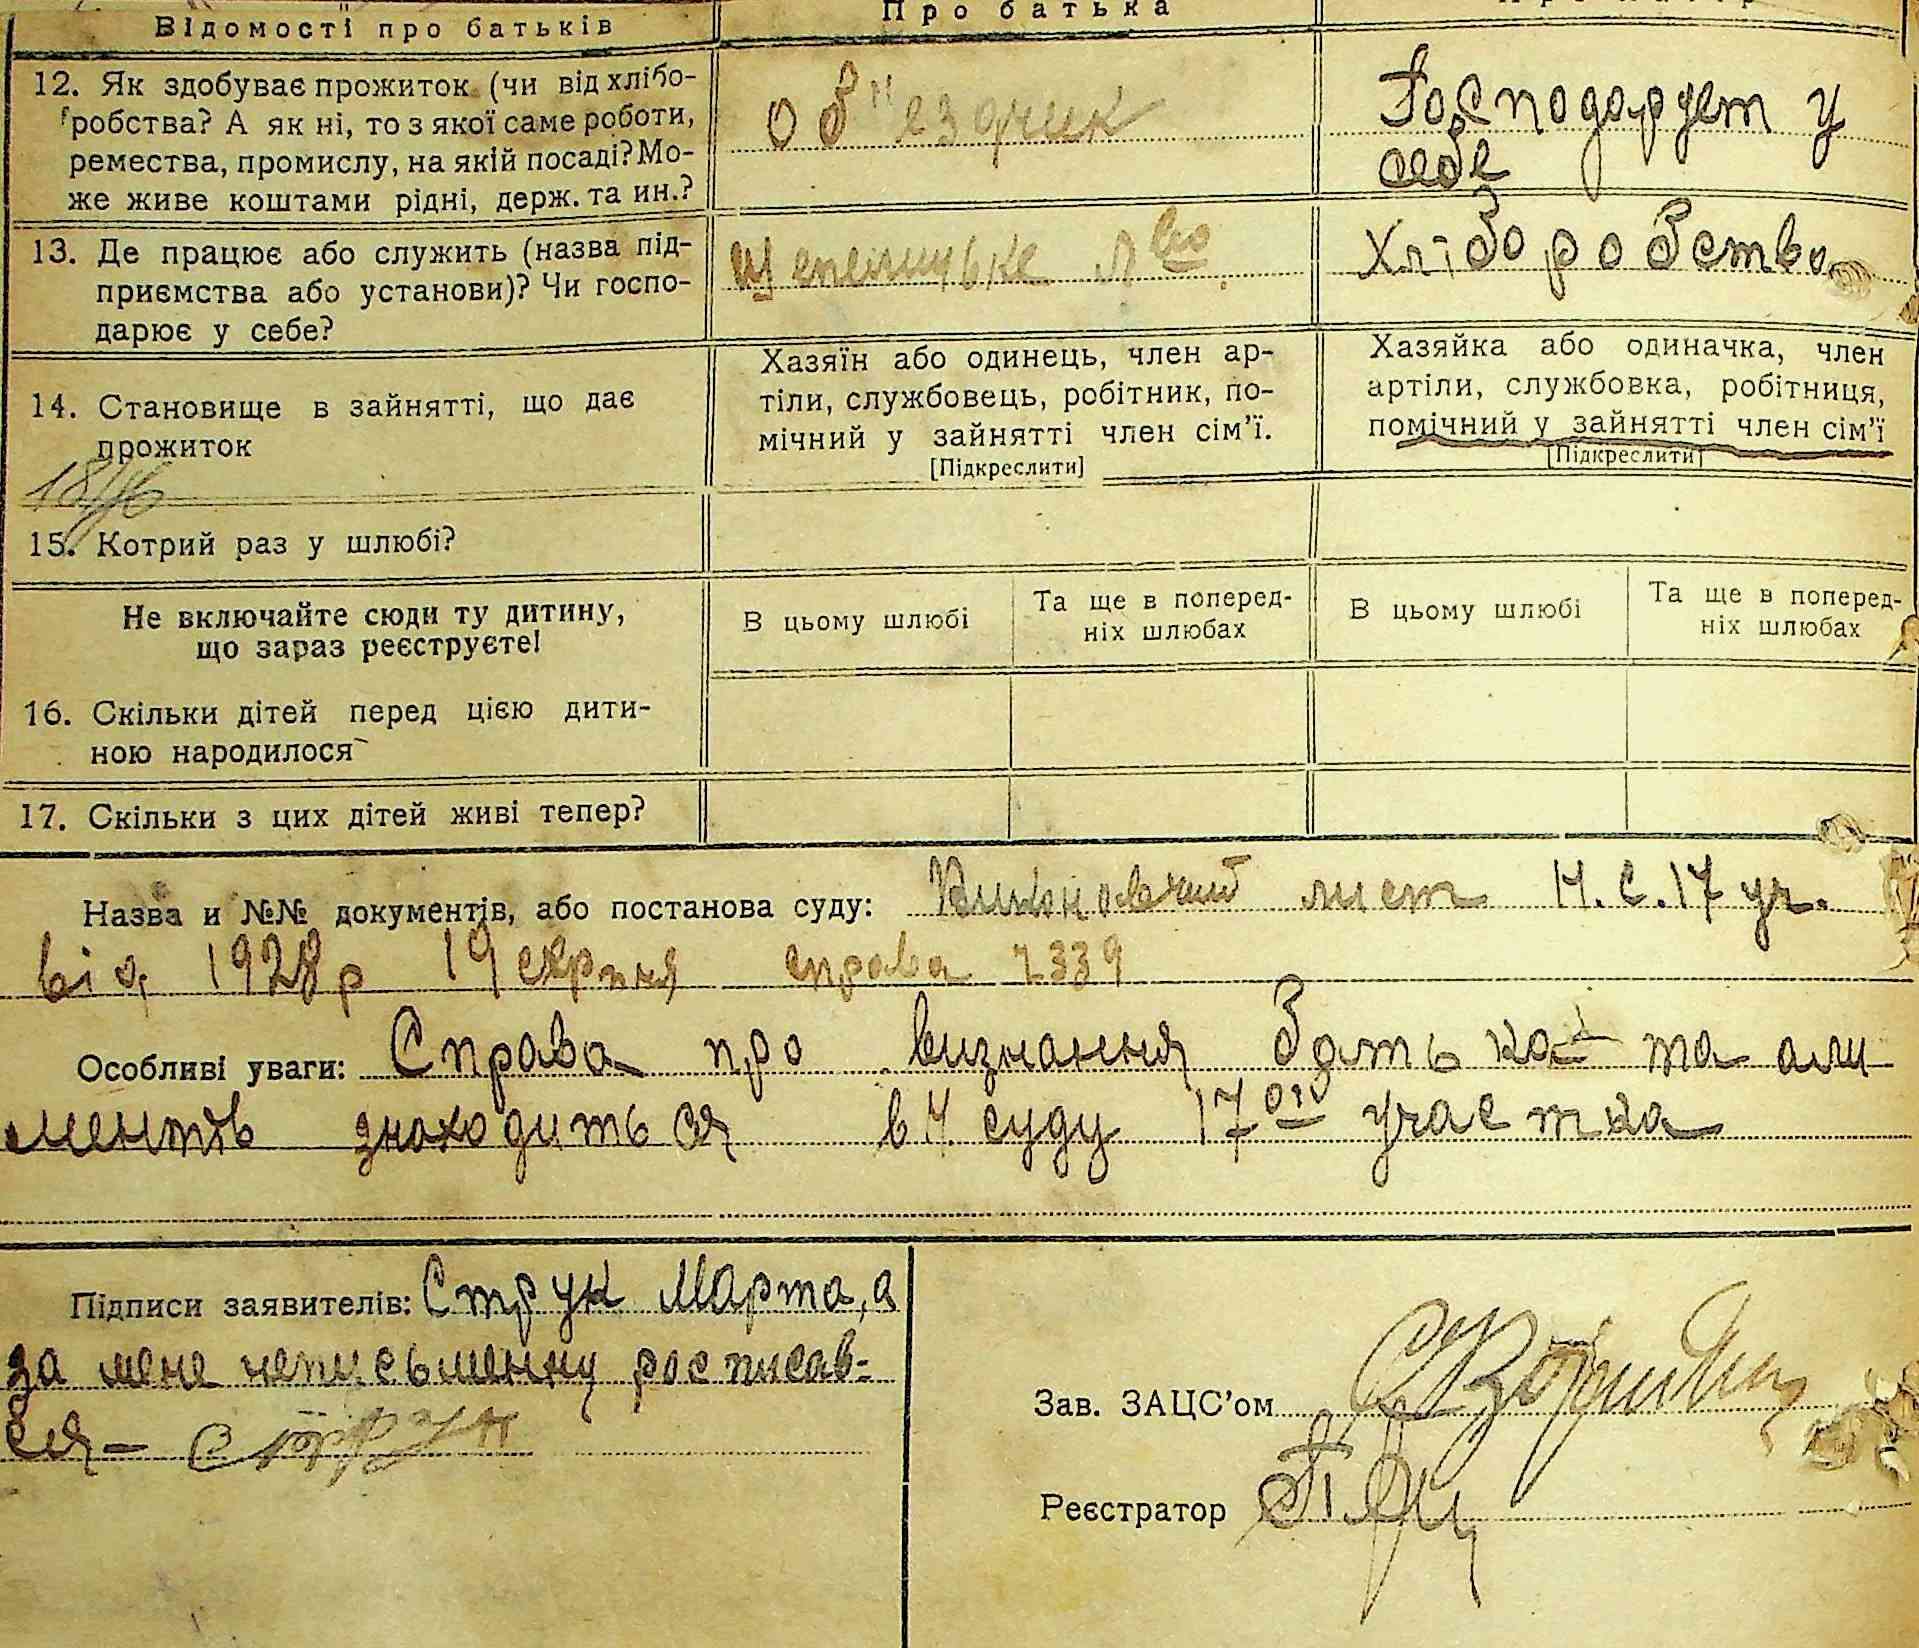 Відомості про батьків
Про батька
12. Як здобуває прожиток (чи від хлібо-
робства? А як ні, то з якої саме роботи,
ремества, промислу, на якій посаді? Мо-
же живе коштами рідні, держ. та ин.?
об"ездчик
Господарует у
себе
13. Де працює або служить (назва під-
приємства або установи)? Чи госпо-
дарює у себе?
Хліборобство
14. Становище в зайнятті, що дає
прожиток
Хазяїн або одинець, член ар-
тіли, службовець, робітник, по-
мічний у зайнятті член сім'ї.
[Підкреслити]
Хазяйка або одиначка, член
артіли, службовка, робітниця,
помічний у зайнятті член сім'ї
[Підкреслити]
15. Котрий раз у шлюбі?
Не включайте сюди ту дитину,
що зараз реєструєте!
В цьому шлюбі
Та ще в поперед-
ніх шлюбах
В цьому шлюбі
Та ще в поперед-
ніх шлюбах
16. Скільки дітей перед цією дити-
ною народилося
17. Скільки з цих дітей живі тепер?
Назва и №№ документів, або постанова суду: лист Н.С. 17 уч.
від 1928 р 19 серпня справа
Особливі уваги: Справа про визнання батька та али
ментів знаходиться в Н. суду 17ого участка
Підписи заявителів: Струк Марта, а
за мене неписьменну росписав-
ся – Струк
Зав. ЗАЦС'ом
Реєстратор